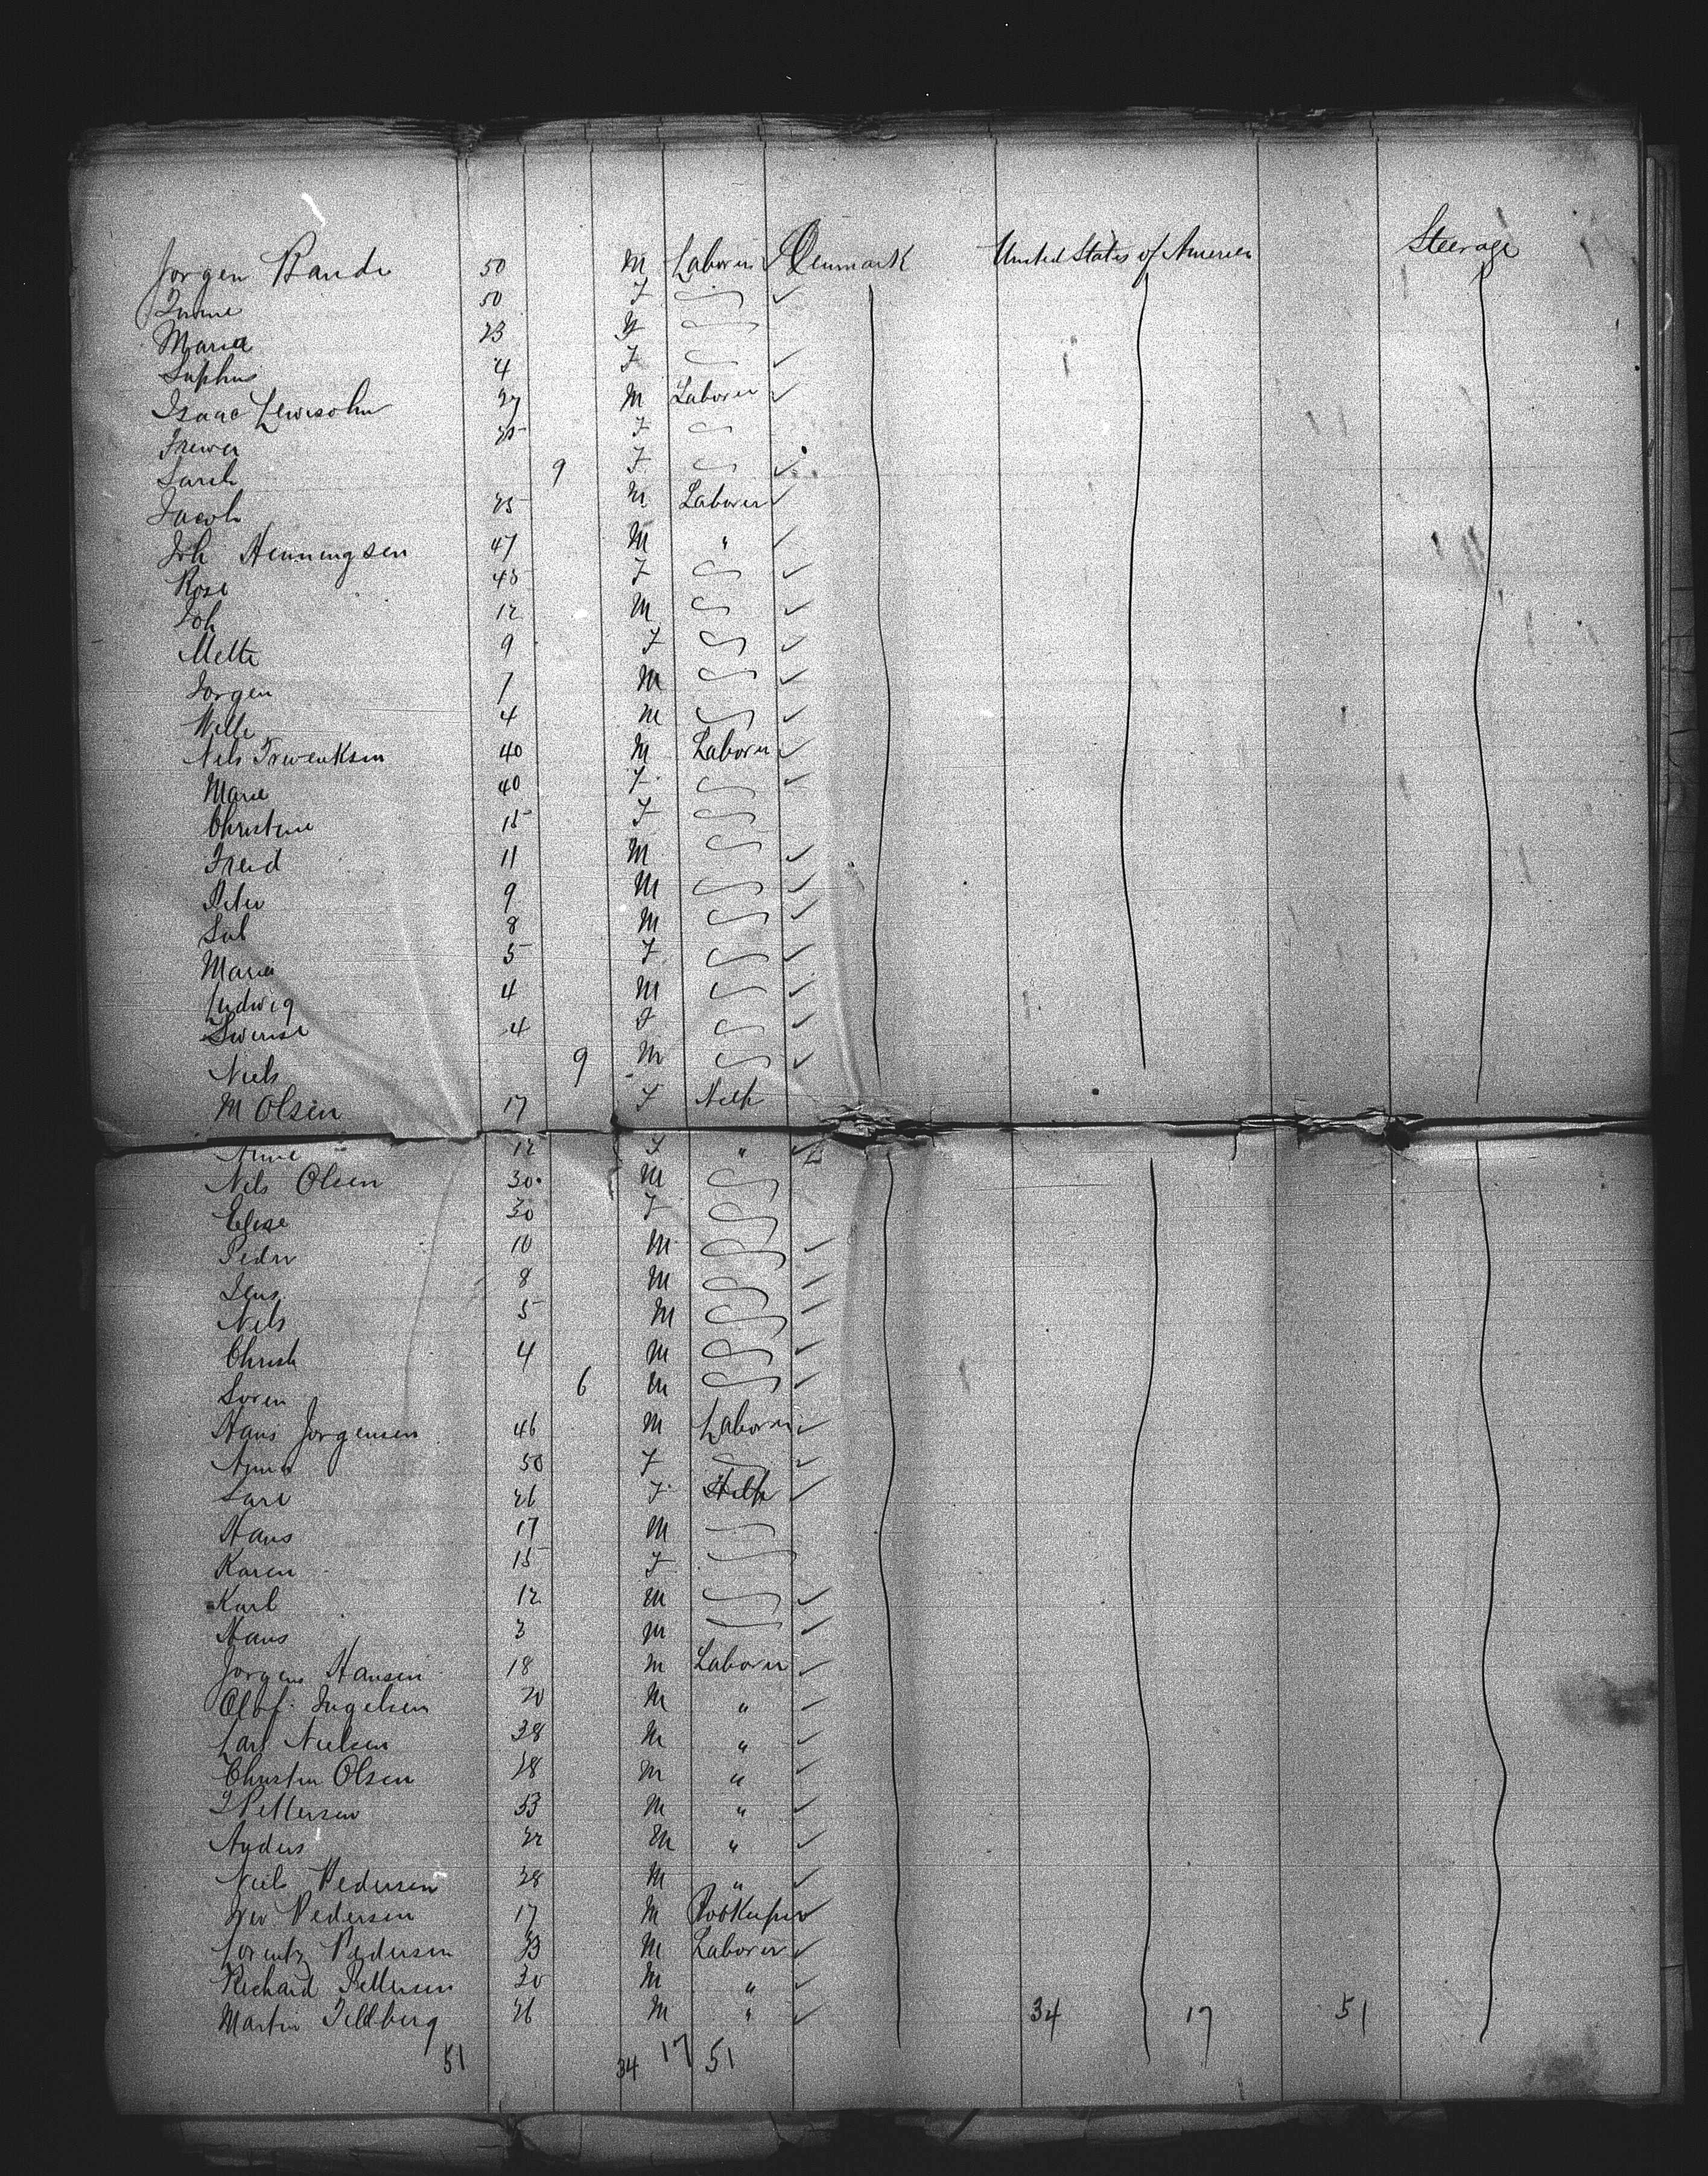 Jorgen Bande 50 M Laborer Denmark United States of America Steerage
50 F
Maria 23 F
Sophus 4 F
Isaac Lewisohn 27 M Laborer
25 F
Sarah 9 F
Jacob 25 M Laborer
Joh Henningsen 47 M "
Rose 45 F
Joh 12 M
Mette 9 F
Jorgen 7 M
Wille 4 M
Nels 40 M Laborer
Marie 40 F
Christine 15 F
Freid 11 M
Peter 9 M
8 M
Maria 5 F
Ludwig 4 M
4 F
Niels 9 M
M Olsen 17 F Help
Anne 12 F "
Nils Olsen 30 M
Elise 30 F
Peder 10 M
Jens 8 M
Nils 5 M
Christ 4 M
Soren 6 M
Hans Jorgensen 46 M Laborer
Anna 50 F
26 F Help
Hans 17 M
Karen 15 F
Karl 12 M
Hans 3 M
Jorgen Hansen 18 M Laborer
Olof Ingelsen 20 M "
Carl Nielsen 38 M "
Christen Olsen 28 M "
Pettersen 53 M "
Anders 22 M "
Niels Pedersen 28 M "
Pedersen 17 M Bokkeper
Lorentz Pedersen 23 M Laborer
Richard Pettersen 30 M "
Martin Tellberg 26 M " 34 17 51
51 34 17 51